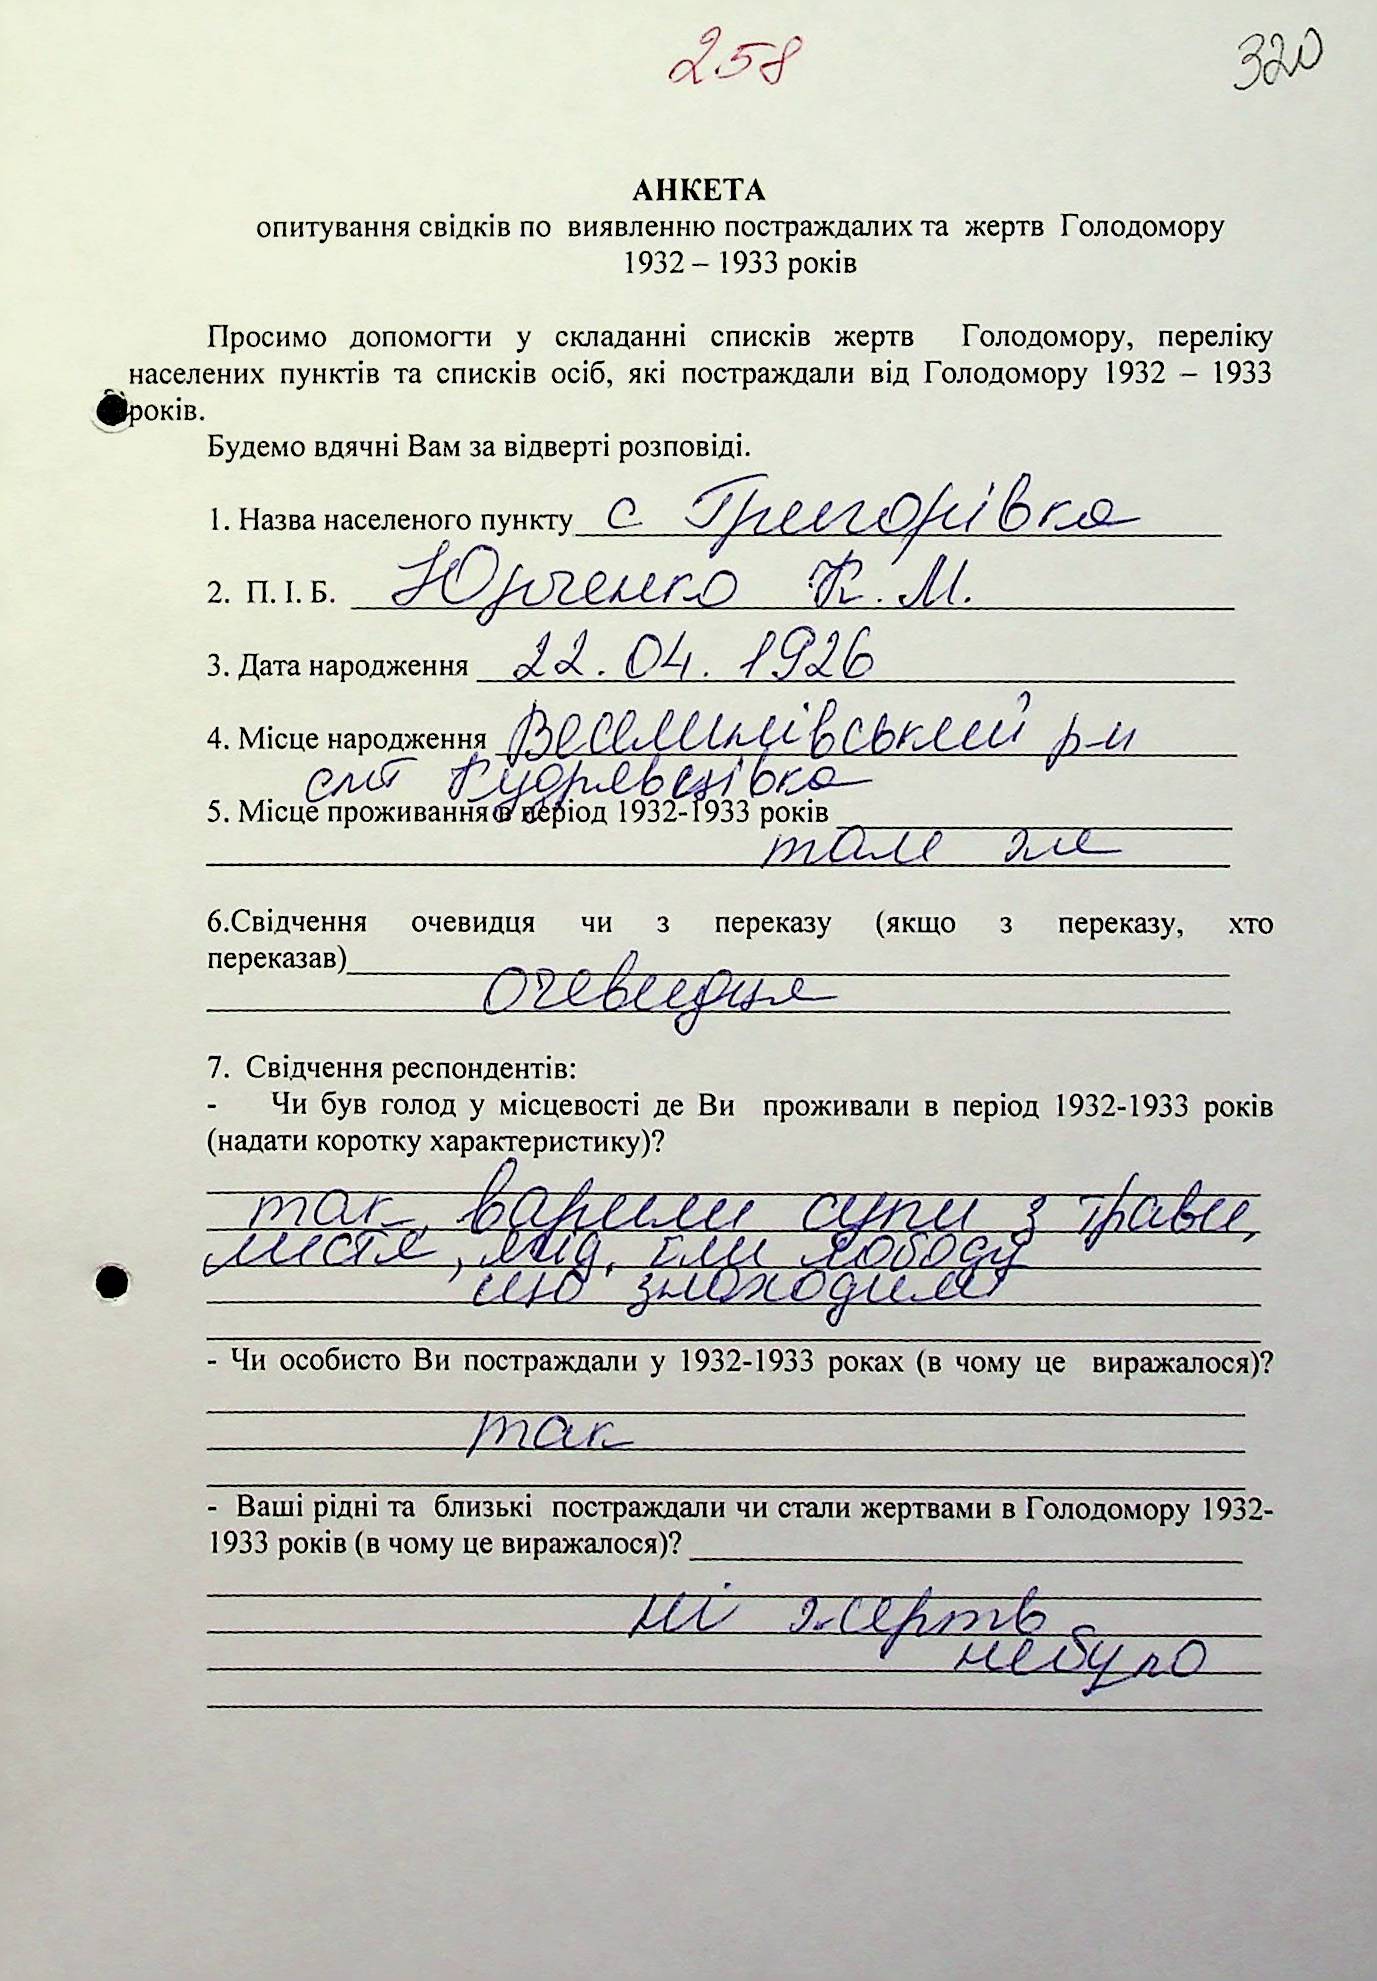 258
320
АНКЕТА
опитування свідків по виявленню постраждалих та жертв Голодомору
1932 – 1933 років
Просимо допомогти у складанні списків жертв Голодомору, переліку
населених пунктів та списків осіб, які постраждали від Голодомору 1932 – 1933
років.
Будемо вдячні Вам за відверті розповіді.
1. Назва населеного пункту с Григорівка
2. П. І. Б. Юрченко К. М.
3. Дата народження 22.04.1926
4. Місце народження Веселинівський р-н
смт Кудрявцівка
5. Місце проживання в період 1932-1933 років
там же
6.Свідчення очевидця чи з переказу (якщо з переказу, хто
переказав)
очевидця
7. Свідчення респондентів:
- Чи був голод у місцевості де Ви проживали в період 1932-1933 років
(надати коротку характеристику)?
так, варили супи з трави,
листя, їли лободу
що знаходили
- Чи особисто Ви постраждали у 1932-1933 роках (в чому це виражалося)?
так
- Ваші рідні та близькі постраждали чи стали жертвами в Голодомору 1932-
1933 років (в чому це виражалося)?
ні жертв
небуло